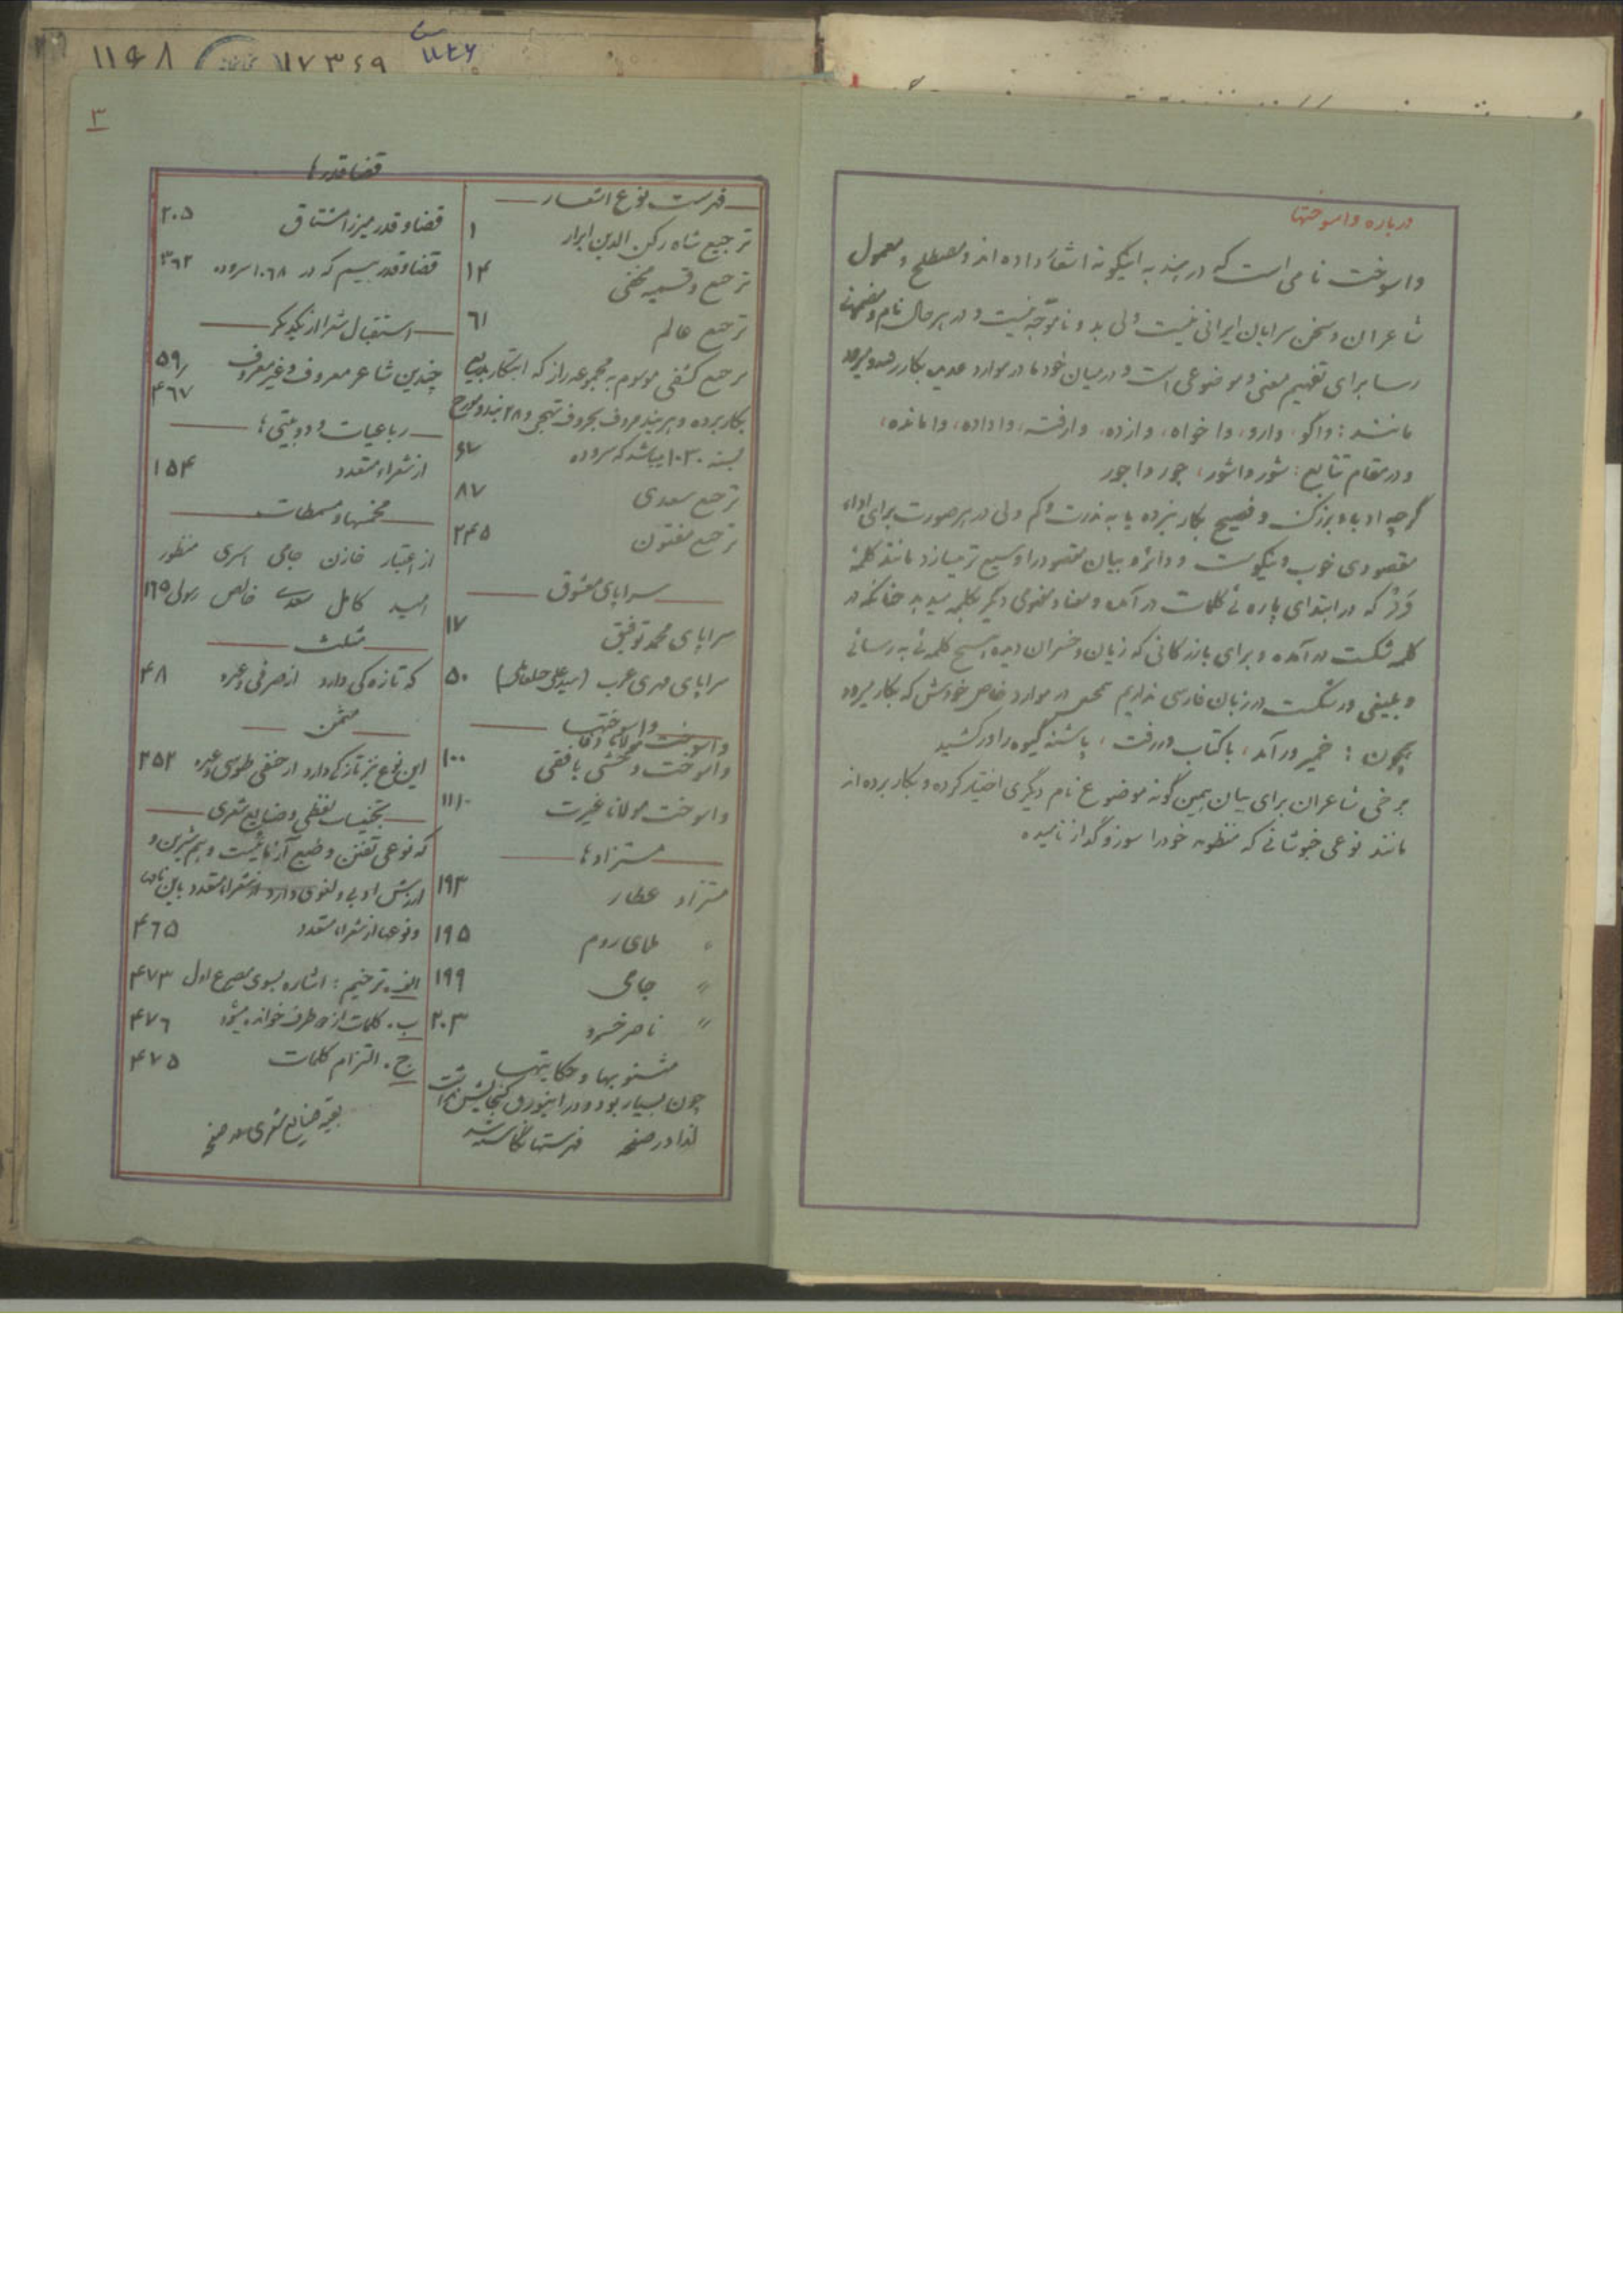 ۱۱۶۸
۱۷۳۶۹
درباره واسوختها
واسوخت نامی است که در هند به اینگونه اشعار داده اند و مصطلح و معمول
شاعران و سخن سرایان ایرانی نیست ولی بد و ناموجه نیست و در هر حال نام و مفهومی
رسا برای تفهیم معنی و موضوعی است و در میان خود ما در موارد عدیده بکار رفته و میرود
مانند: واگو، دارو، واخواه، وازده، وارفته، واداده، وامانده،
و در مقام تتابع: شور واشور، جور واجور
گرچه ادباء بزرگ و فصیح بکار نبرده یا به ندرت و کم ولی در هر صورت برای اداء
مقصودی خوب و نیکوست و دائره بیان مقصود را وسیع تر میسازد مانند کلمهٔ
وَر که در ابتدای پاره ئی کلمات در آمده و معنا و مفهومی دیگر بکلمه میدهد چنانکه در
کلمه شکست در آمده و برای بازرگانی که زیان و خسران دیده هیچ کلمه ئی به رسائی
و بلیغی ورشکست در زبان فارسی نداریم در موارد خاص خودش که بکار میرود
همچون: خمیر ور آمد، با کتاب ور رفت، پاشنه گیوه را ورکشید
برخی شاعران برای بیان همین گونه موضوع نام دیگری اختیار کرده و بکار برده اند
مانند نوعی خبوشانی که منظومه خود را سوز و گداز نامیده
۳
فهرست نوع اشعار
ترجیع شاه رکن الدین ابرار ۱
ترجیع و قسمیه مخفی ۱۴
ترجیع عالم ۶۱
ترجیع کشفی موسوم به مجموعه راز که ابتکار بدیعی
بکار برده و هر بند معروف بحروف تهجی و ۲۸ بند و مورخ
بسنه ۱۰۳۰ میباشد که سروده ۶۷
ترجیع سعدی ۸۷
ترجیع مفتون ۲۴۵
سراپای معشوق
سراپای محمد توفیق ۱۷
سراپای مهری عرب (سید علی) ۵۰
واسوختها
واسوخت مولانا
واسوخت وحشی بافقی ۱۰۰
واسوخت مولانا غیرت ۱۱۱۰
مستزادها
مستزاد عطار ۱۹۳
〃 ملای روم ۱۹۵
〃 جامی ۱۹۹
〃 ناصر خسرو ۲۰۳
مثنویها و حکایتها
چون بسیار بود و در اینورق گنجایش نداشت
لذا در صفحه فهرستها نگاشته شد
قضا قدرها
قضا و قدر میرزا مشتاق ۲۰۵
قضا و قدر بسیم که در ۱۰۶۸ سروده ۳۶۲
استقبال شعرا از یکدیگر
چندین شاعر معروف و غیر معروف ۵۹/
۴۶۷
رباعیات و دوبیتی ها
از شعراء متعدد ۱۵۴
مخمسها و مسمطات
از اعتبار خازن جامی اسری منظور
امید کامل سعدی خالص رسولی ۱۶۵
مثلث
که تازه گی دارد از صرفی و غیره ۴۸
مثمن
این نوع نیز تازگی دارد از حنفی طوسی و غیره ۲۵۲
تجنیسات لفظی و صنایع شعری
که نوعی تفنن و طبع آزمائیست و هم شیرین و
ارزش ادبی و لغوی دارد از شعراء متعدد باین نامها
و نوعها از شعراء متعدد ۴۶۵
الف. ترخیم: اشاره بسوی مصرع اول ۴۷۳
ب. کلمات از ۵ طرف خوانده میشود ۴۷۶
ج. التزام کلمات ۴۷۵
بقیه صنایع شعری صفحه